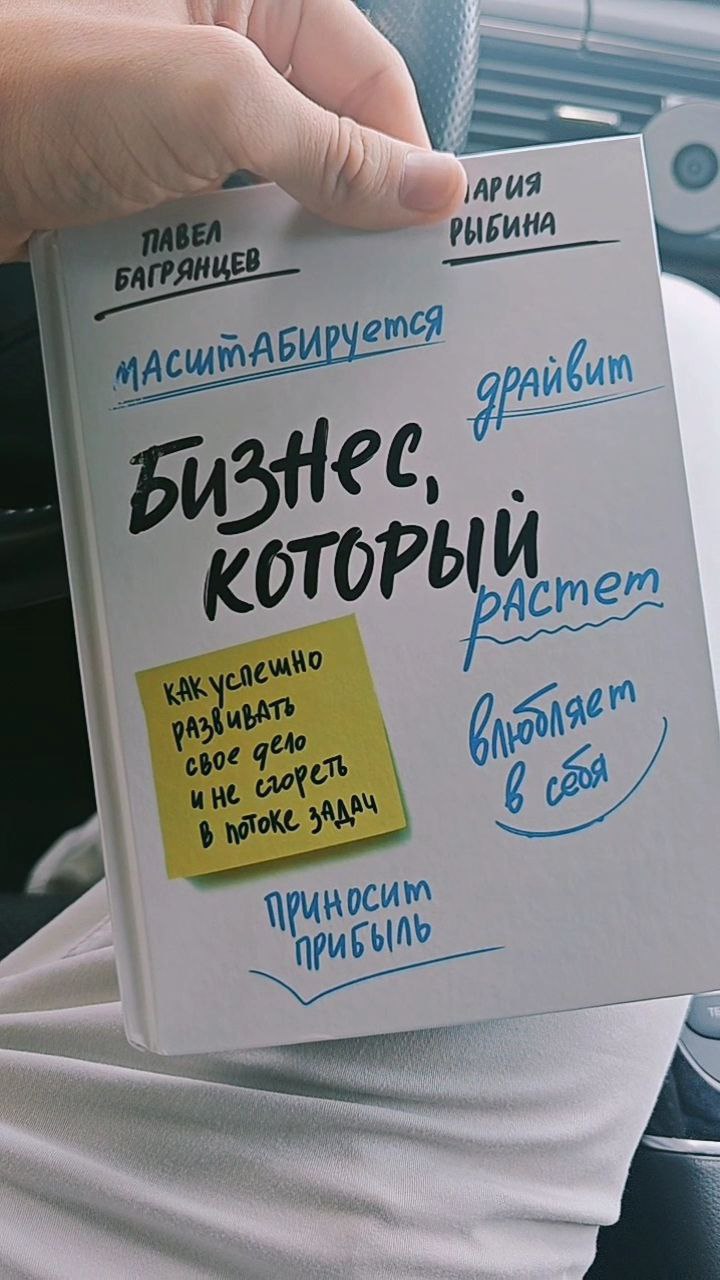 ПАВЕЛ
БАГРЯНЦЕВ
АРИЯ
РЫБИНА
масштабируется
драйвит
Бизнес,
который
растет
как успешно
развивать
свое дело
и не сгореть
в потоке задач
влюбляет
в себя
приносит
прибыль